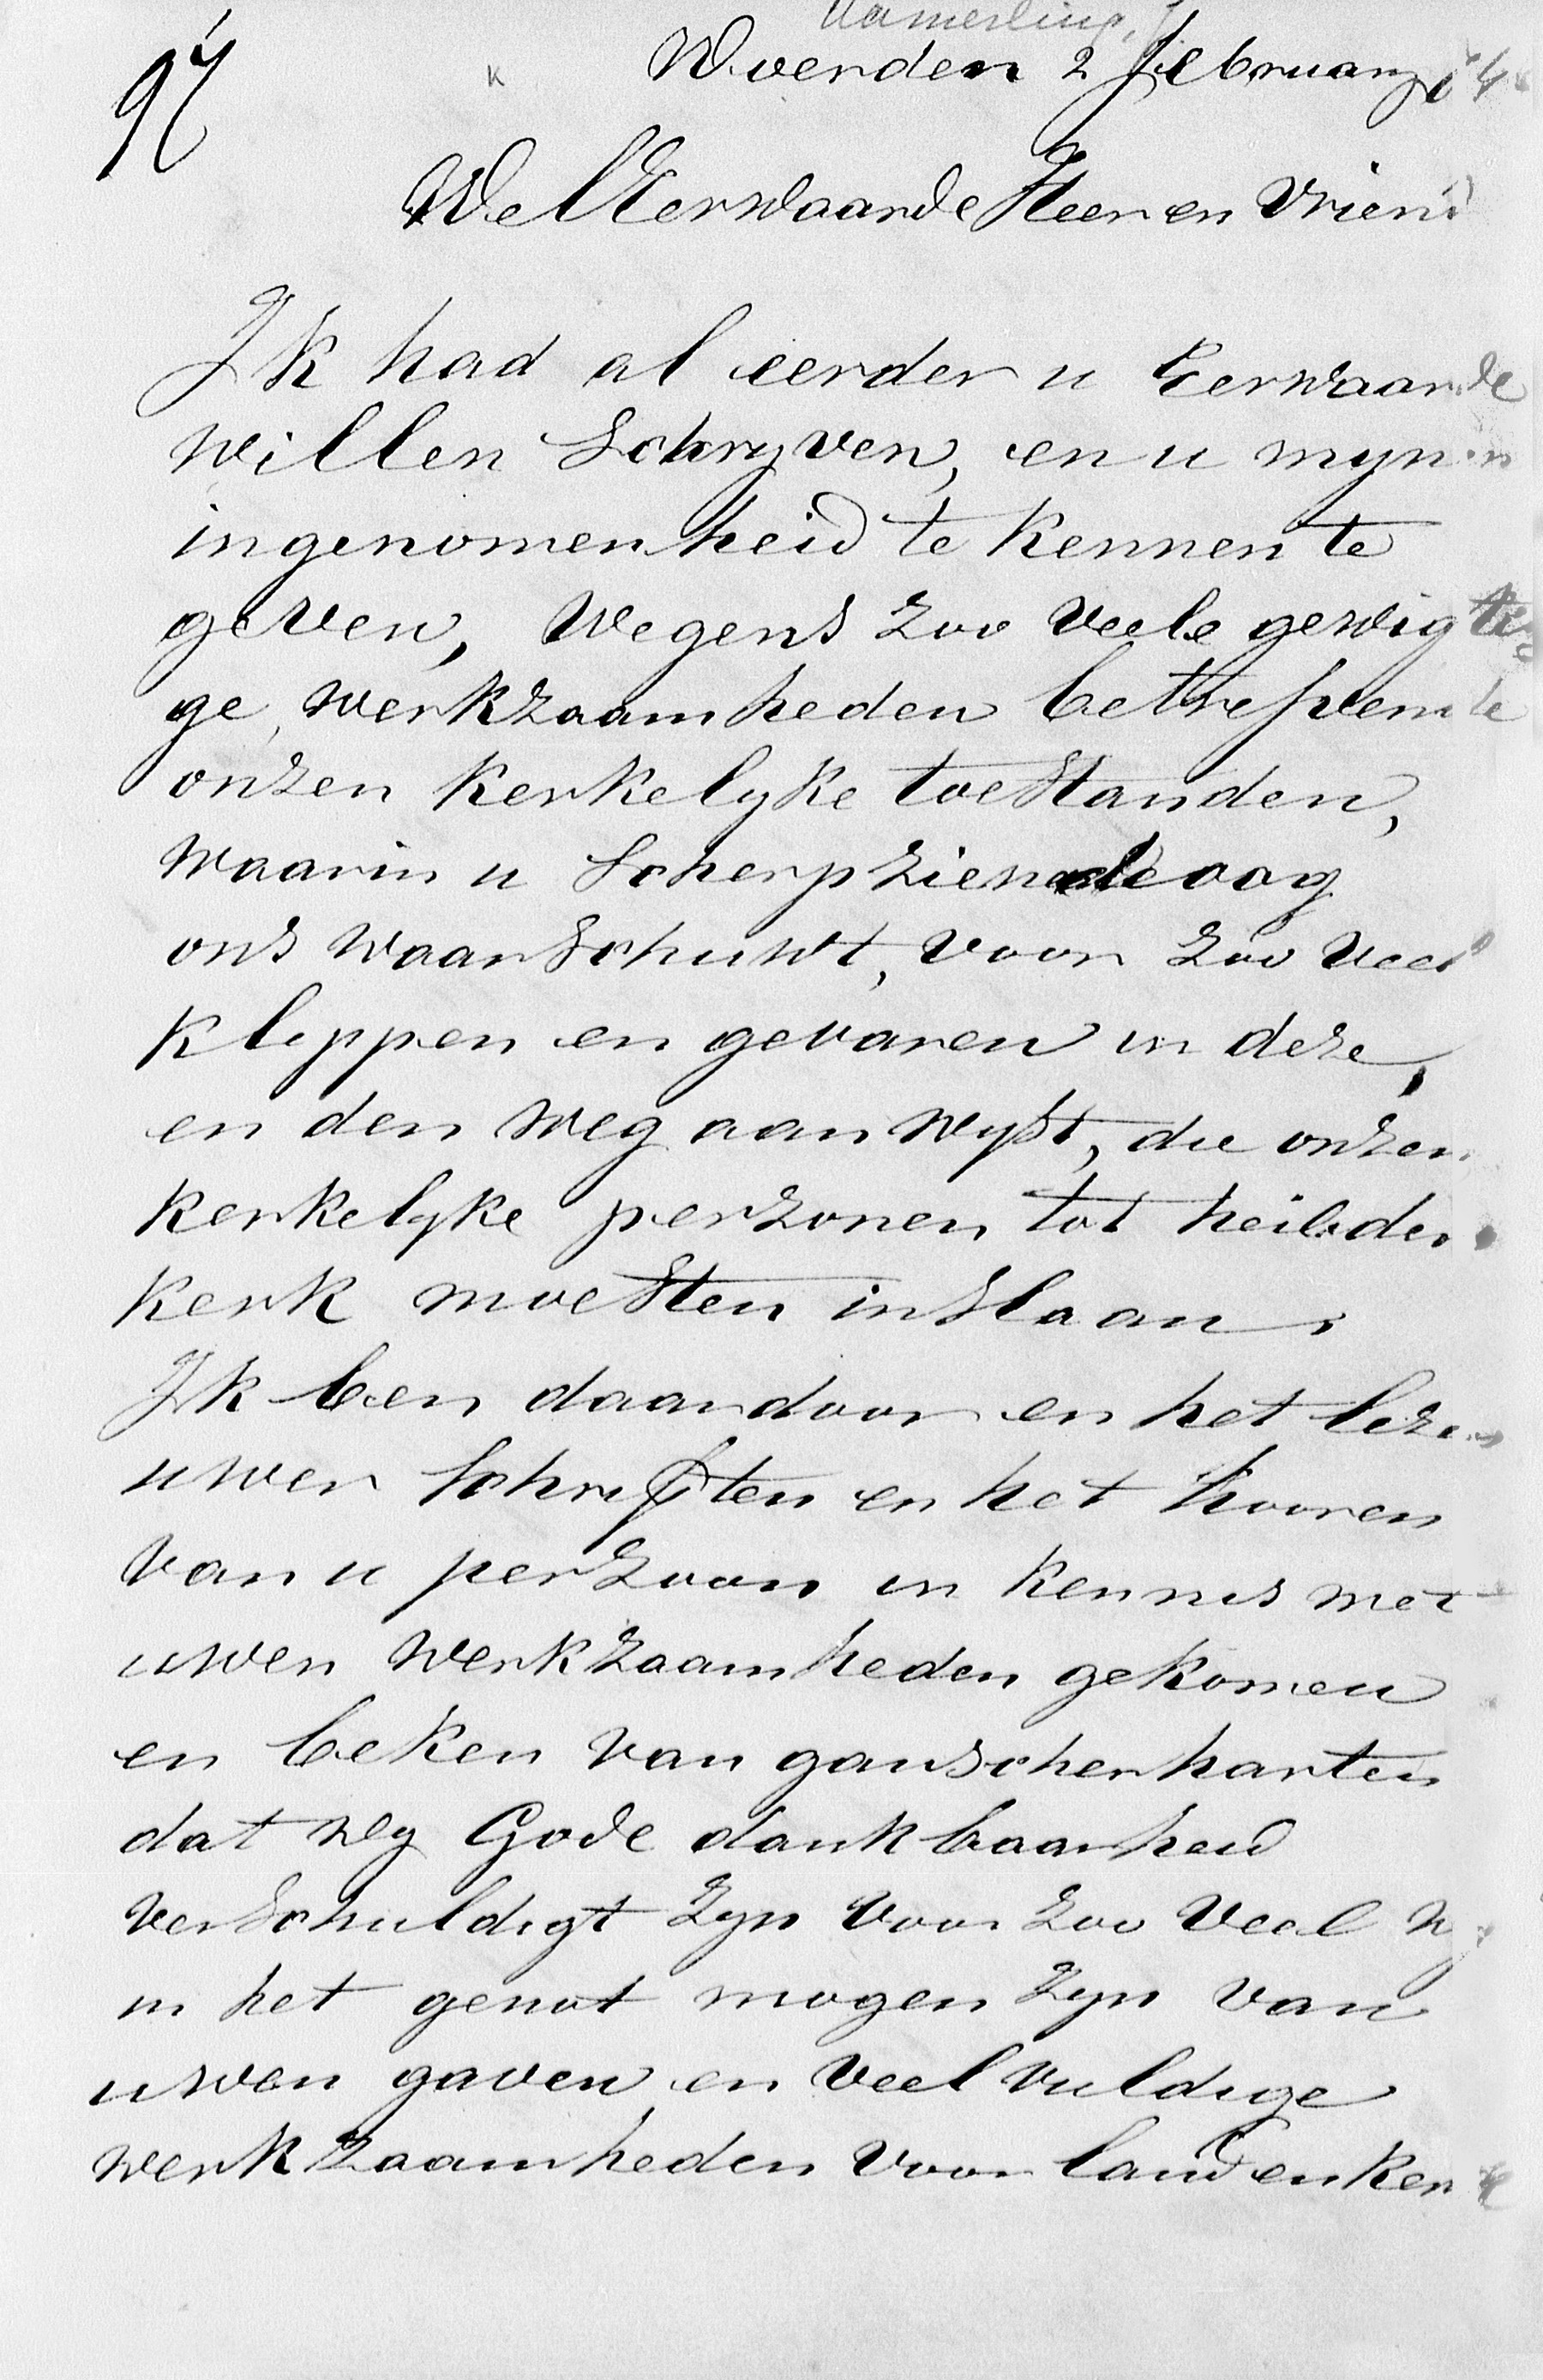 Woerden 2 February
97
WelEerwaarde Heer en Vriend
Ik had al eerder u Eerwaarde
willen Schryven, en u myn
ingenomenheid te kennen te
geven, wegens zoo veele gewigti
ge, werkzaamheden betreffende
onzen kerkelyke toestanden,
waarin u Scherpziende oog
ons waarschuwt, voor zoo veel
klippen en gevaren in deze,
en den weg aan wyst, die onzen
kerkelyke perzonen tot heil der
kerk moesten inslaan,
Ik ben daardoor en het lezen
uwer Schriften en het hooren
van u perzoon in kennis met
uwen werkzaamheden gekomen
en beken van ganscher harten
dat wy Gode dankbaarheid
verschuldigt zyn voor zoo veel wy
in het genot mogen zyn van
uwen gaven en veelvuldige
werkzaamheden voor land en kerk